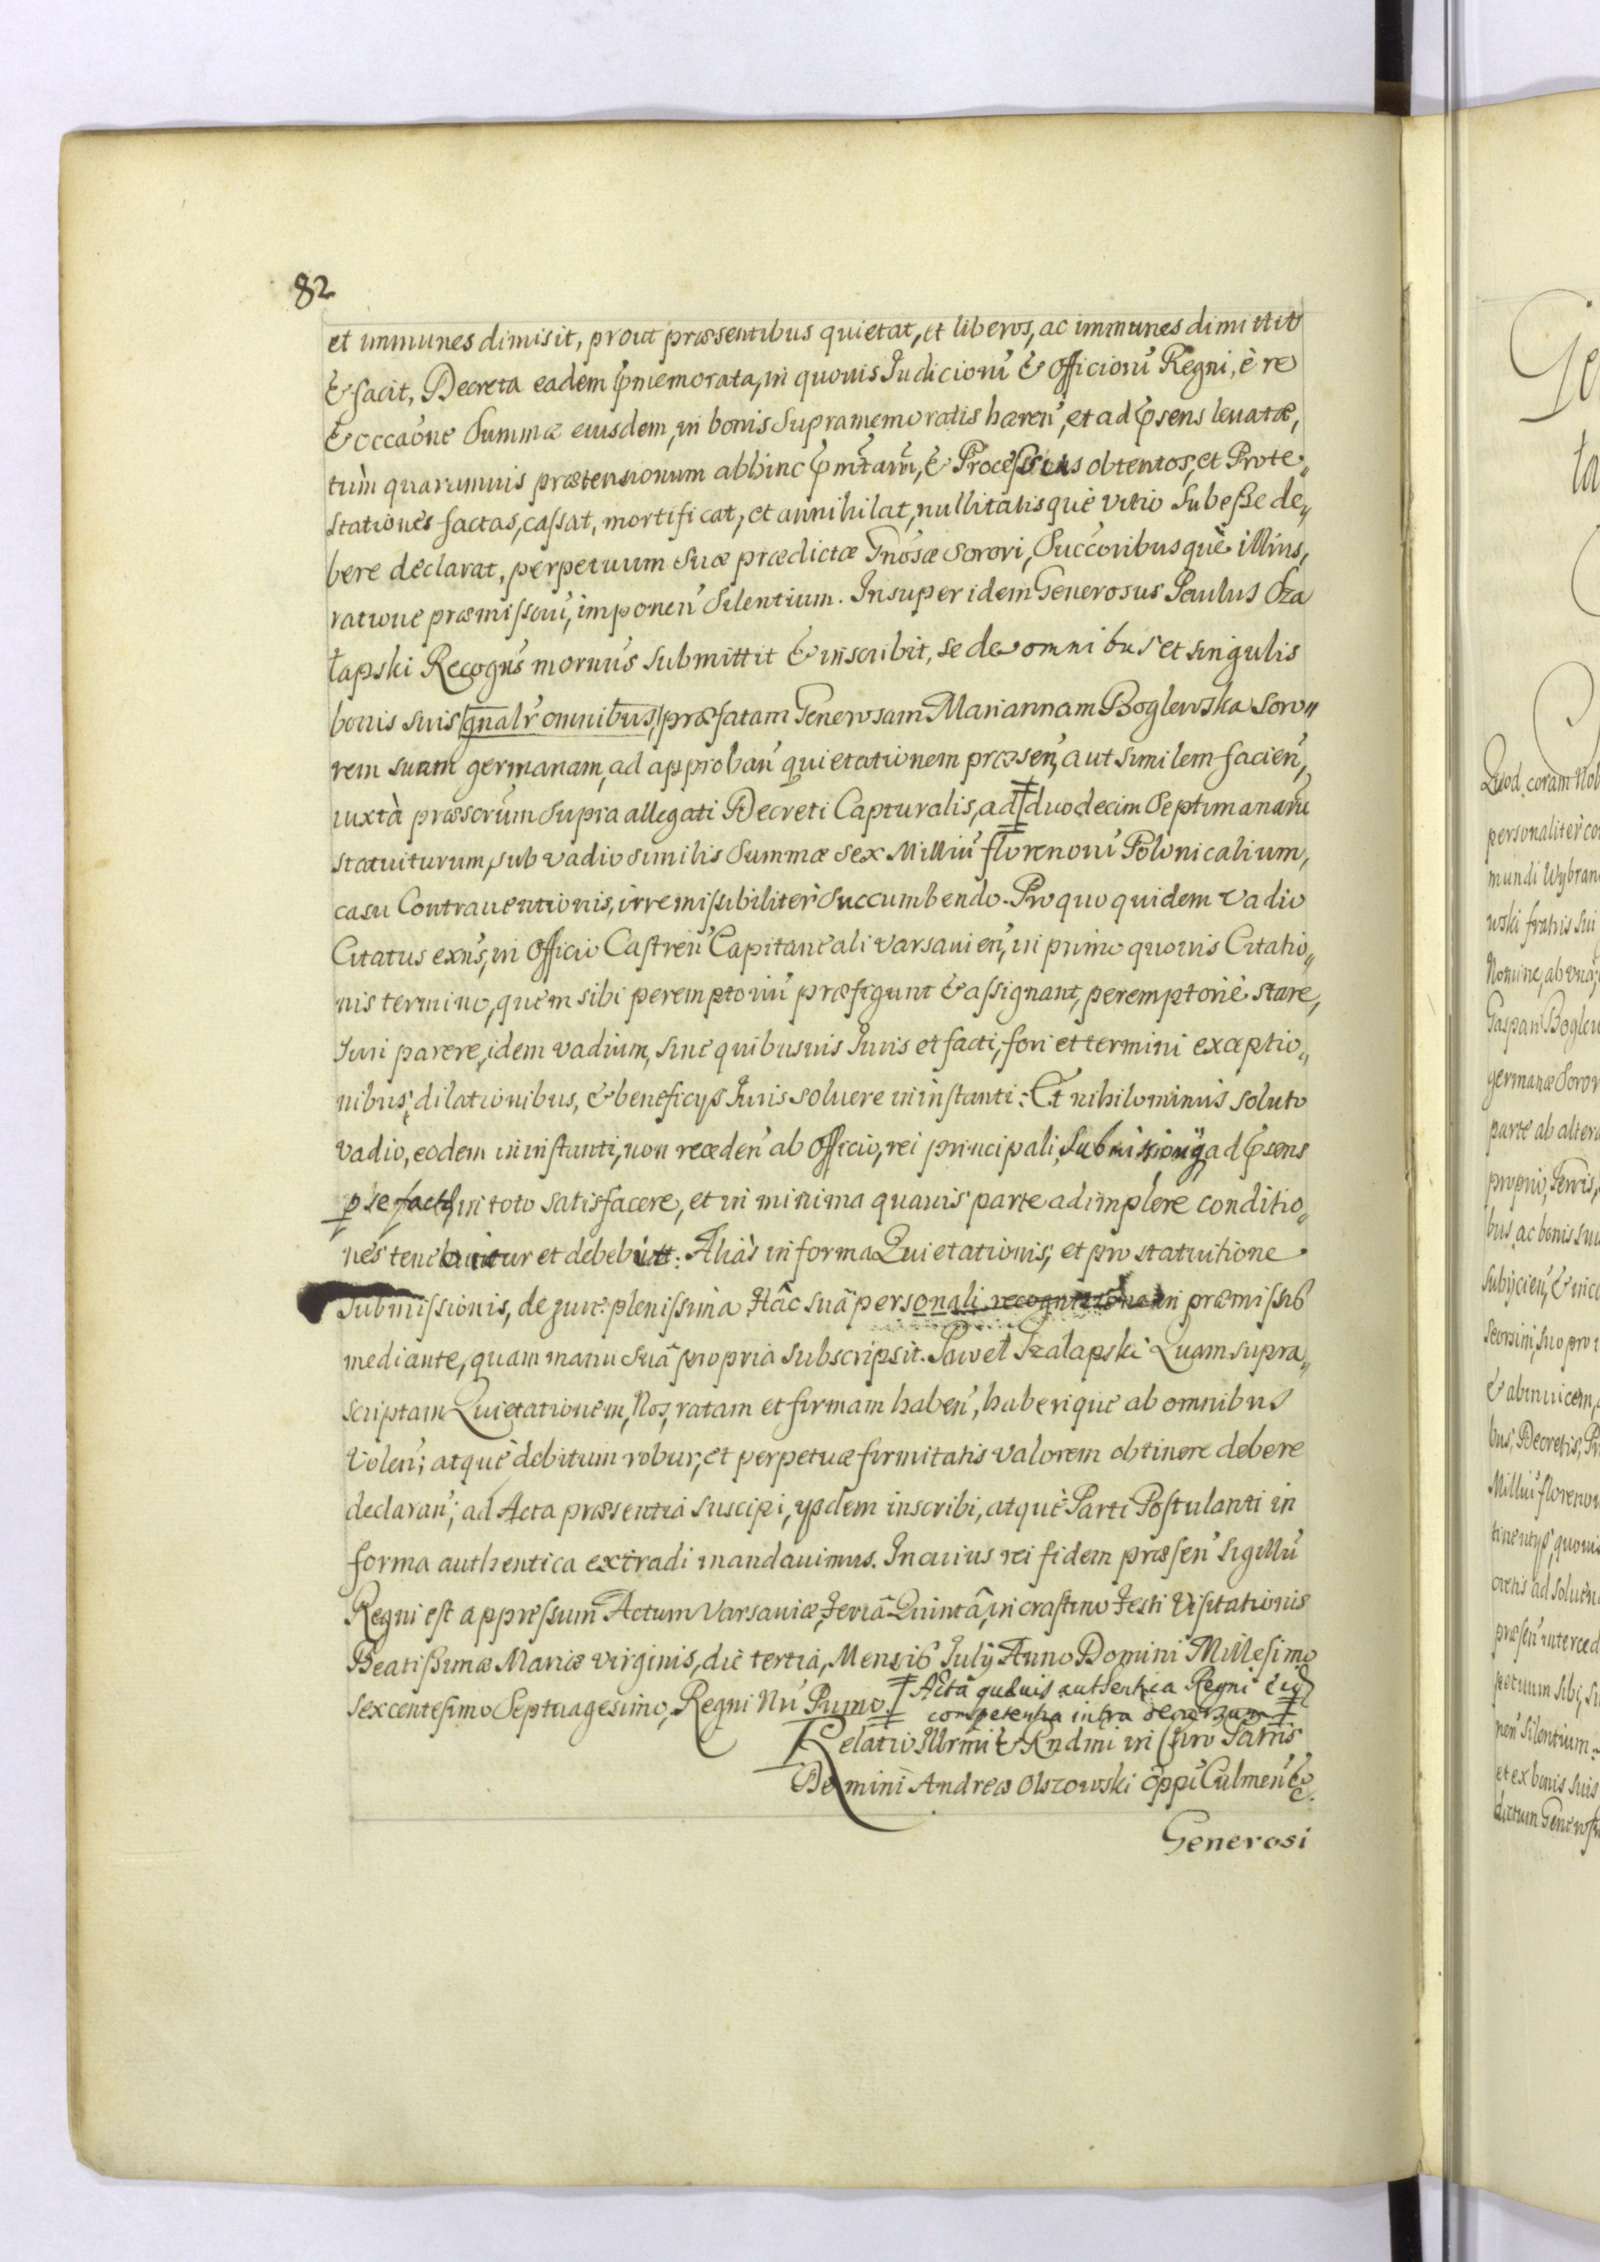 82
et immunes dimisit, prout præsentibus quietat, et liberos, ac immunes dimittit
& facit, Decreta eadem pmemorata, in quouis Iudicioru & Officioru Regni, è re
& occaõne Summæ eiusdem, in bonis Supramemoratis hæren, et ad psens leuatæ,
tùm quarumuis prætensionum abhinc obtentos, et Prote„
stationes factas, cassat, mortificat, et annihilat, nullitatisquè vitio Subeße de„
bere declarat, perpetuum Suæ prædictæ Gnosæ Sorori, Succoribusquè illius,
ratione præmissoru, imponen Silentium. Insuper idem Generosus Paulus Sza
łapski Recogns mornus Submittit & inscribit, se de omnibus et singulis
bonis suis gnalr omnibus præfatam Generosam Mariannam Boglewska Soro„
rem suam germanam, ad approban quietationem præsen, aut similem facien,
iuxtà præscrum Supra allegati Decreti Capturalis, ad duodecim Septimanaru
statuiturum, sub vadio similis Summæ Sex Milliu florenoru Polonicalium,
casu Contrauentionis, irremissibiliter Succumbendo. Pro quo quidem Vadio
Citatus exns, in Officio Castren Capitaneali Varsauien, in primo quouis Citatio„
nis termino, quem sibi peremptoriu præfigunt & assignant, peremptoriè stare,
Iuri parere, idem vadium, sine quibusuis Iuris et facti, fori et termini exceptio„
nibus, dilationibus, & beneficys Iuris soluere in instanti: Et nihilominus soluto
vadio, eodem in instanti, non receden ab Officio, rei principali, Submissionis ad psens
p se factæ in toto satisfacere, et in minima quauis parte adimplere conditio„
nes tenebitur et debebit: Aliàs in forma Quietationis, et pro statuitione
Submissionis, de iure plenissima Hâc suâ personali recognitione in præmissis
mediante, quam manu Suâ propria subscripsit. Paweł Szalapski Quam supra„
scriptam Quietationem, Nos, ratam et firmam haben, haberique ab omnibus
Volen; atquè debitum robur, et perpetuæ firmitatis valorem obtinere debere
declaran; ad Acta præsentia suscipi, ysdem inscribi, atquè Parti Postulanti in
forma authentica extradi mandauimus. In cuius rei fidem præsen Sigillu
Regni est appressum Actum Varsauiæ, Feriâ Quintâ, in crastino Festi Visitationis
Beatissimæ Mariæ Virginis, die tertia, Mensis July Anno Domini Millesimo
sexcentesimo Septuagesimo, Regni Nri Primo. Acta quæuis authentica Regni
competentia intra decursum
Relatio Illrmi & Rndmi in Chro Patris
Domini Andreæ Olszowski Eppi Culmen &c.
Generosi